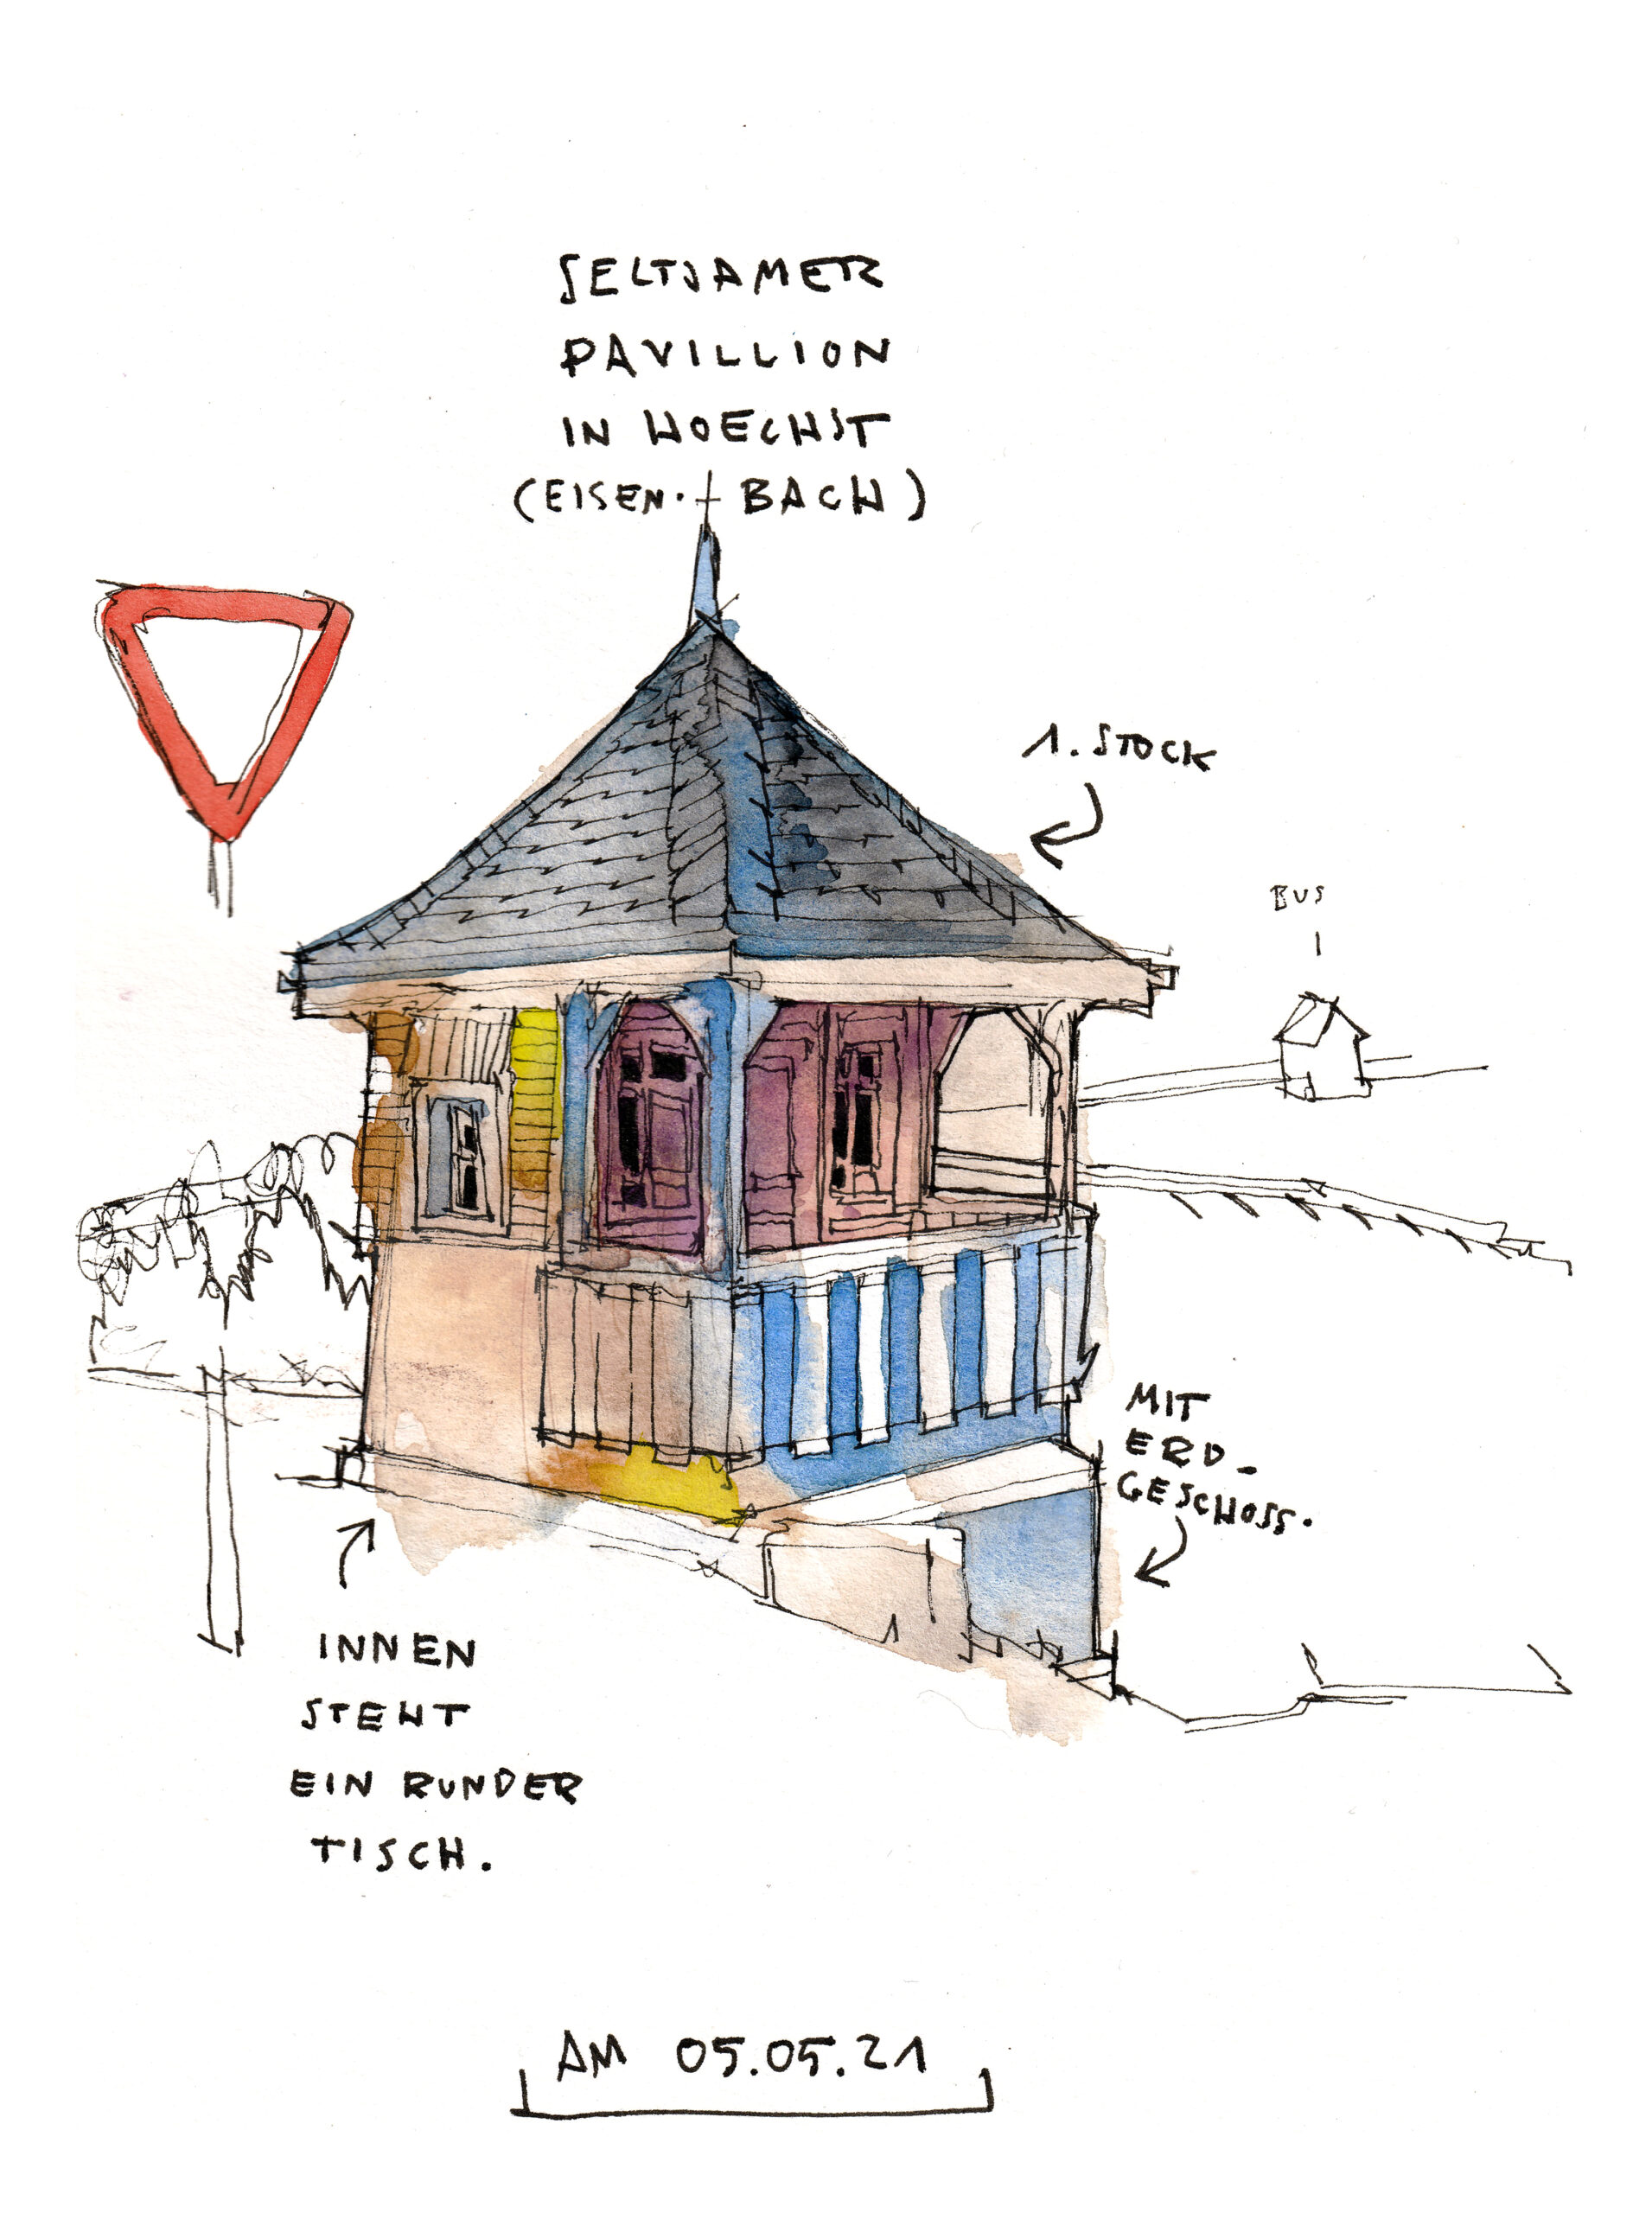 SELTSAMER
PAVILLION
IN HOECHST
(EISEN. BACH)
1. STOCK
BUS
MIT
ERD-
GESCHOSS.
INNEN
STEHT
EIN RUNDER
TISCH.
AM 05.05.21